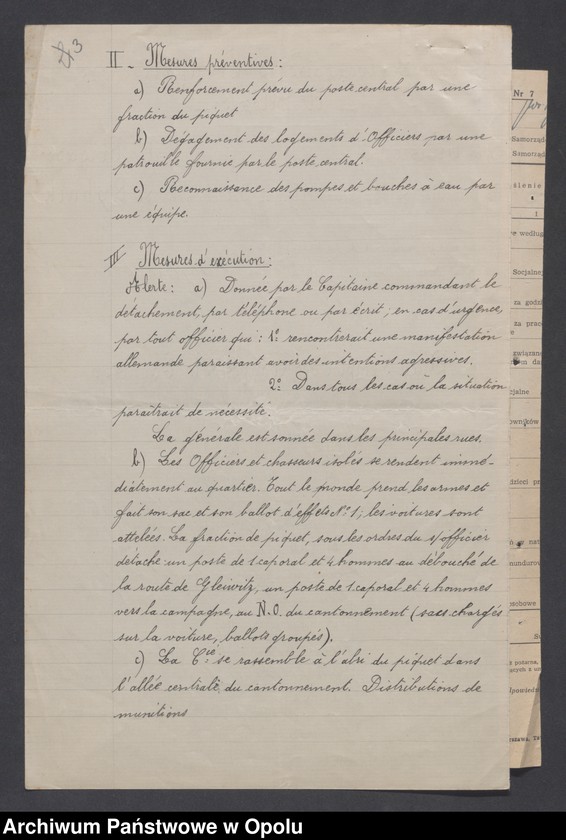 3
II - Mesures préventives :
a) Renforcement prévu du poste central par une
fraction du piquet
b) Dégagement des logements d'Officiers par une
patrouille fournie par le poste central.
c) Reconnaissance des pompes et bouches à eau par
une équipe.
III Mesures d'exécution :
Alerte : a) Donnée, par le Capitaine commandant le
détachement, par téléphone ou par écrit ; en cas d'urgence,
par tout officier qui : 1º rencontrerait une manifestation
allemande paraissant avoir des intentions agressives.
2º Dans tous les cas où la situation
paraîtrait de nécessité.
La générale est sonnée dans les principales rues.
b) Les Officiers et chasseurs isolés se rendent immé-
diatement au quartier. Tout le monde prend les armes et
fait son sac et son ballot d'effets Nº 1 ; les voitures sont
attelées. La fraction de piquet, sous les ordres du s/officier
détache un poste de 1 caporal et 4 hommes au débouché de
la route de Gleiwitz, un poste de 1 caporal et 4 hommes
vers la campagne, au N.O. du cantonnement (sacs chargés
sur la voiture, ballots groupés).
c) La Cie se rassemble à l'abri du piquet dans
l'allée centrale du cantonnement. Distributions de
munitions
Nr 7
Samorząd
Samorząd
I
Socjalne
za godzi
za prac
cjalne
mundurow
Archiwum Państwowe w Opolu